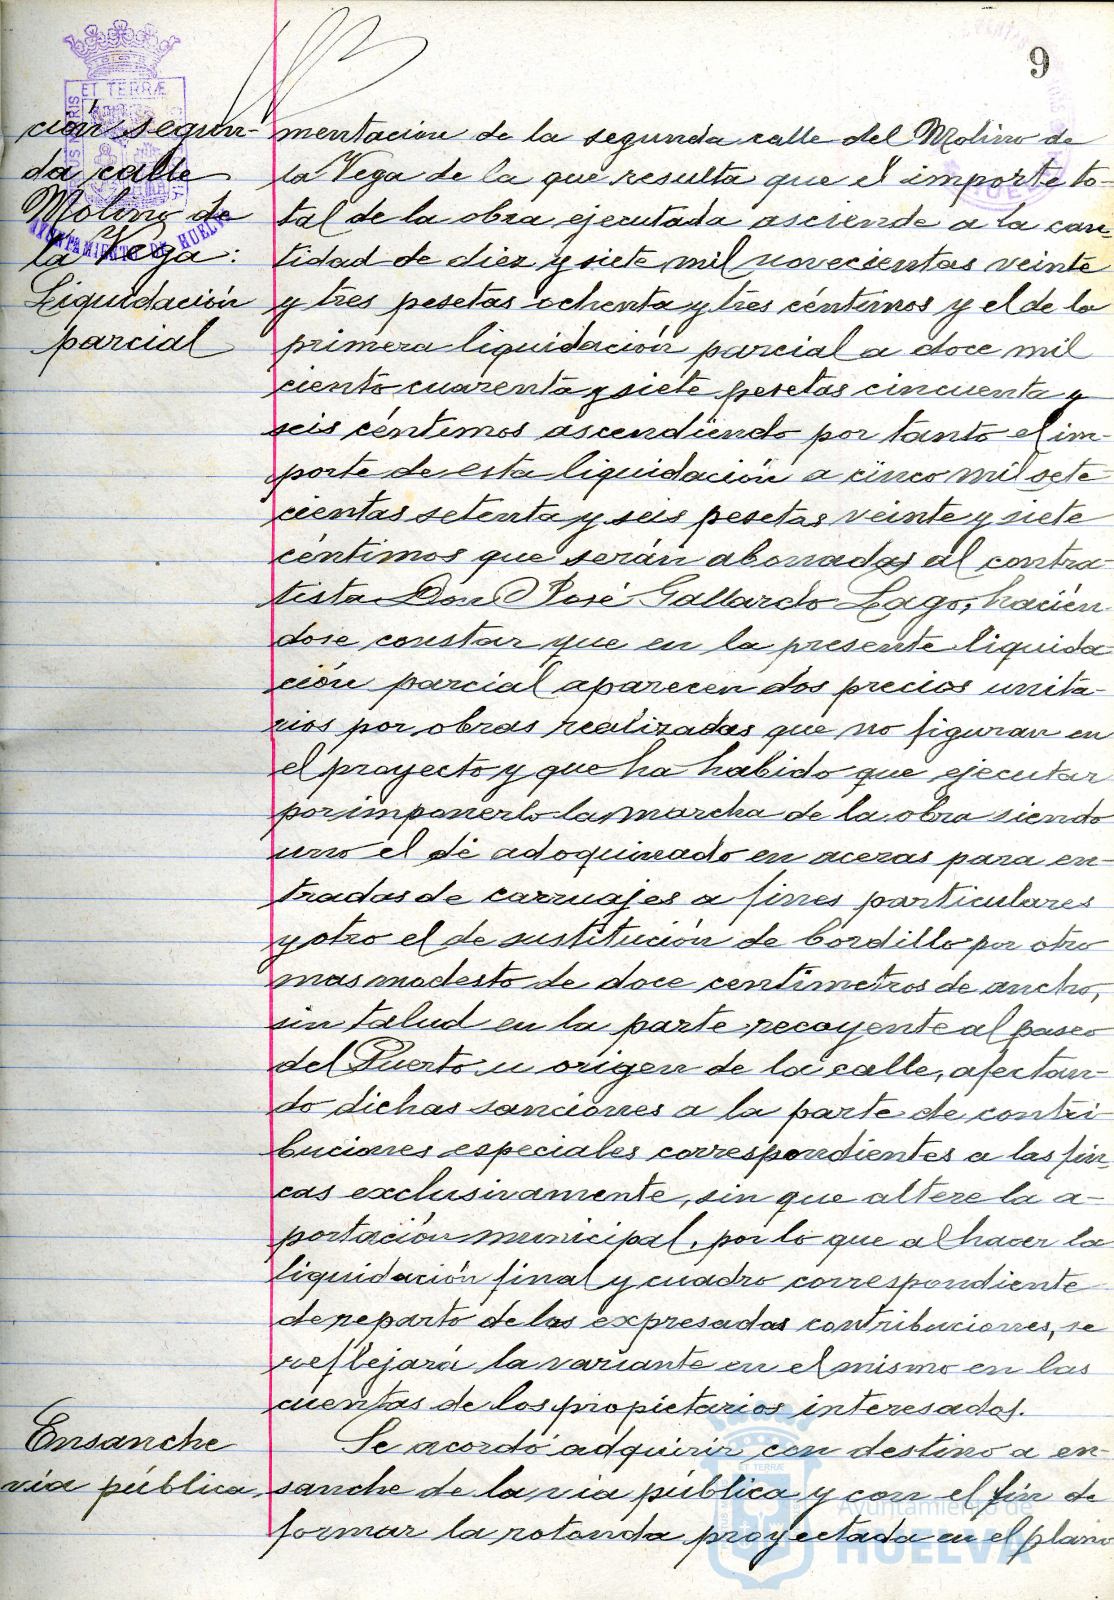 9
ción segun-
da calle
Molino de
la Vega:
Liquidación
parcial
ET TERRÆ
AYUNTAMIENTO DE HUELVA
mentación de la segunda calle del Molino de
la Vega de la que resulta que el importe to-
tal de la obra ejecutada asciende a la can-
tidad de diez y siete mil novecientas veinte
y tres pesetas ochenta y tres céntimos y el de la
primera liquidación parcial a doce mil
ciento cuarenta y siete pesetas cincuenta y
seis céntimos ascendiendo por tanto el im-
porte de esta liquidación a cinco mil sete
cientas setenta y seis pesetas veinte y siete
céntimos que serán abonadas al contra-
tista Don José Gallardo Lago, hacién-
dose constar que en la presente liquida
ción parcial aparecen dos precios unita-
rios por obras realizadas que no figuran en
el proyecto y que ha habido que ejecutar
por imponerlo la marcha de la obra siendo
uno el de adoquinado en aceras para en-
tradas de carruajes a fines particulares
y otro el de sustitución de bordillo por otro
mas modesto de doce centimetros de ancho,
sin talud en la parte recayente al paseo
del Puerto u origen de la calle, afectan-
do dichas sanciones a la parte de contri-
buciones especiales correspondientes a las fin
cas exclusivamente, sin que altere la a-
portación municipal, por lo que al hacer la
liquidación final y cuadro correspondiente
de reparto de las expresadas contribuciones, se
reflejará la variante en el mismo en las
cuentas de los propietarios interesados.
Ensanche
via pública
Se acordó adquirir con destino a en-
sanche de la via pública y con el fin de
formar la rotonda proyectada en el plano
Ayuntamiento de
HUELVA